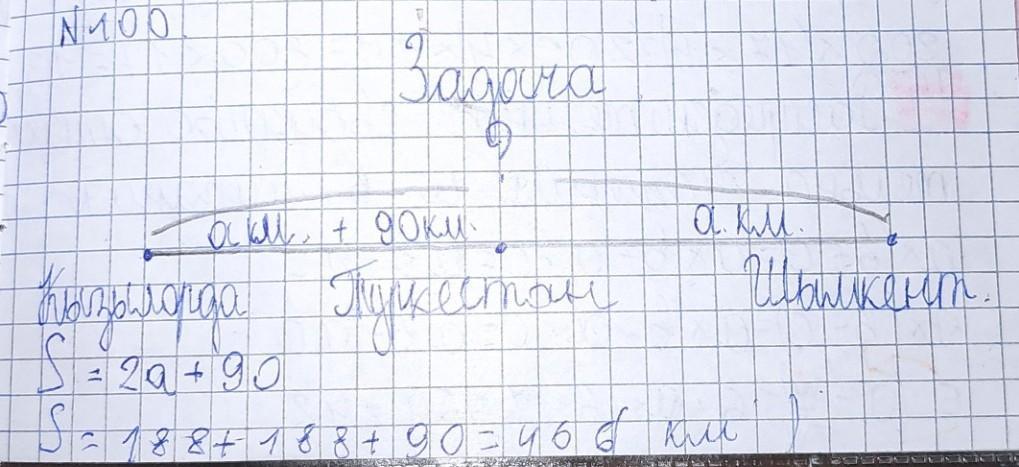 N100.
Задача
?
а км. + 90 км. а. км.
Кызылорда Туркестан Шымкент.
S = 2а + 90
S = 188 + 188 + 90 = 466 км